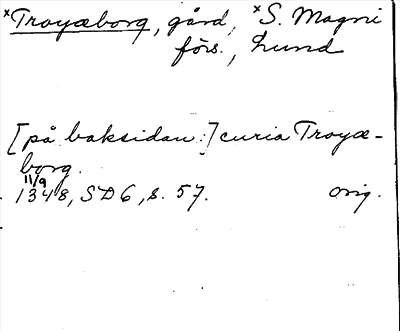 ×Troyæborg, gård, ×S. Magni
förs., Lund
[på baksidan:] curia Troyæ-
borg.
11/9
1348, SD 6, s. 57. orig.